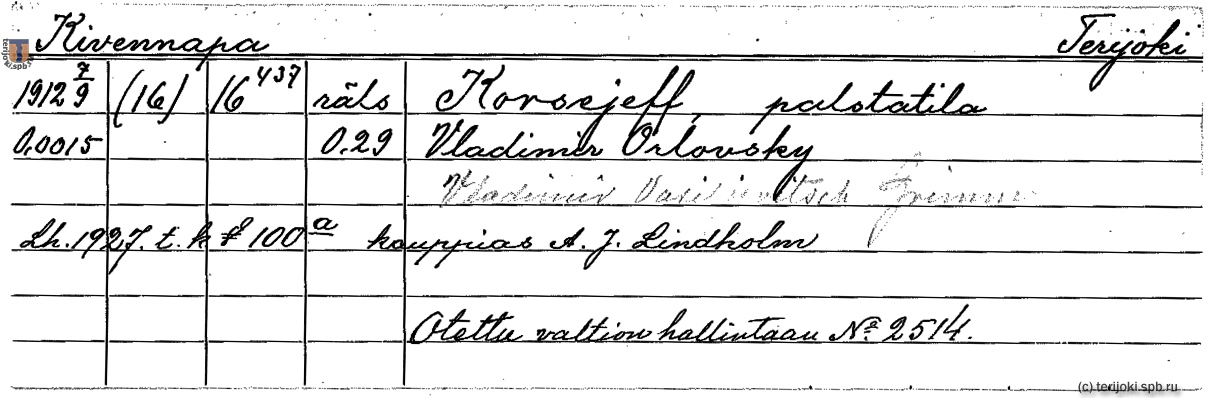 Kivennapa Terijoki
1912 7/9 (16) 16 437 räls Korsejeff, palstatila
0,0015 0.29 Vladimir Orlovsky
Vladimir Vasiljevitsch Grimm
Lh. 1927. t. k § 100 a kauppias A. J. Lindholm
Otettu valtion hallintaan No 2514.
terijoki.spb.ru
(c) terijoki.spb.ru